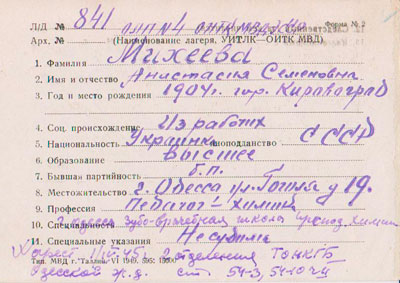 Л/Д № 841 Форма № 2
Арх. № (Наименование лагеря, УИТЛК—ОИТК МВД)
1. Фамилия Михеева
2. Имя и отчество Анастасия Семеновна
3. Год и место рождения 1904 г. гор. Кировоград
4. Соц. происхождение Из рабочих
5. Национальность Украинка подданство СССР
6. Образование высшее
7. Бывшая партийность б.п.
8. Местожительство г. Одесса ул. Гоголя д 19.
9. Профессия Педагог-химик
10. Специальность г. Одесса Зубо-врачебная школа препод. химии
11. Специальные указания Не судима
Арест 45 г. отделения ТОНКГБ
Тип. МВД г. Талlин, VI 1949.
Одесской ж.д. ст. 54-3, 54-10 ч II